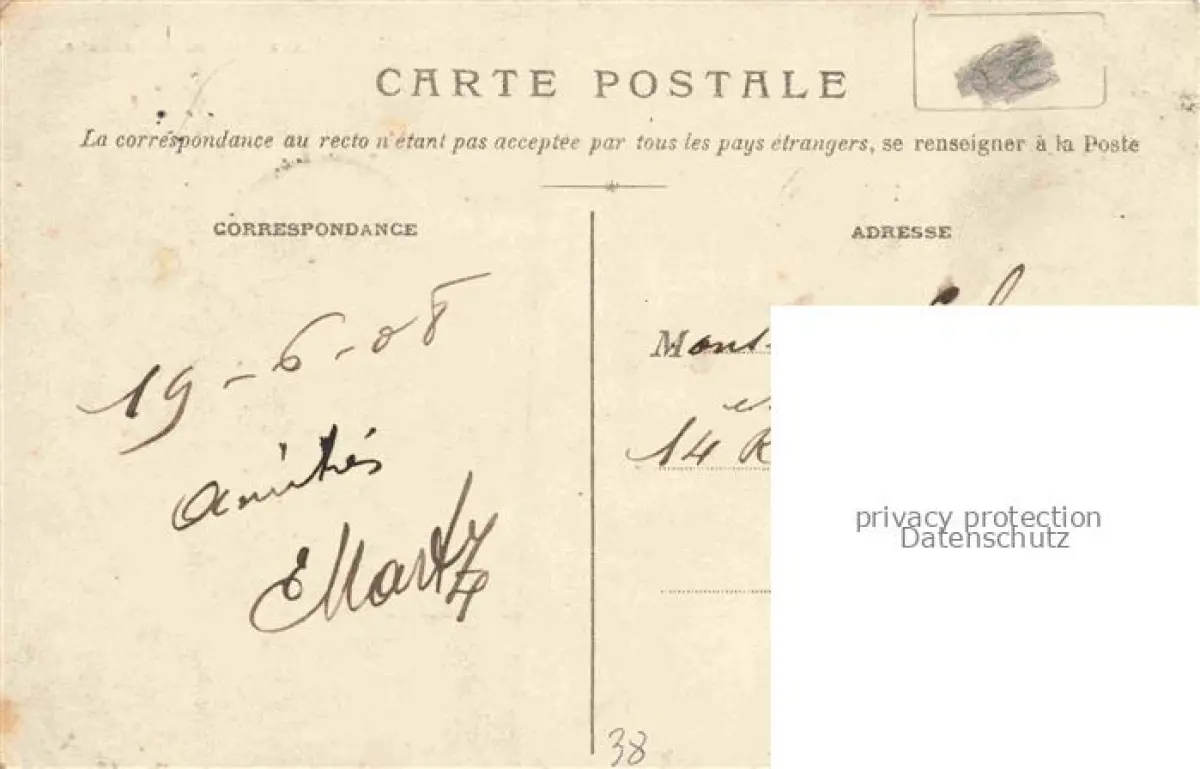 CARTE POSTALE
La correspondance au recto n'étant pas acceptée par tous les pays étrangers, se renseigner à la Poste
CORRESPONDANCE
19-6-08
amitiés
EMartz
ADRESSE
Mons
14 R
38
privacy protection
Datenschutz